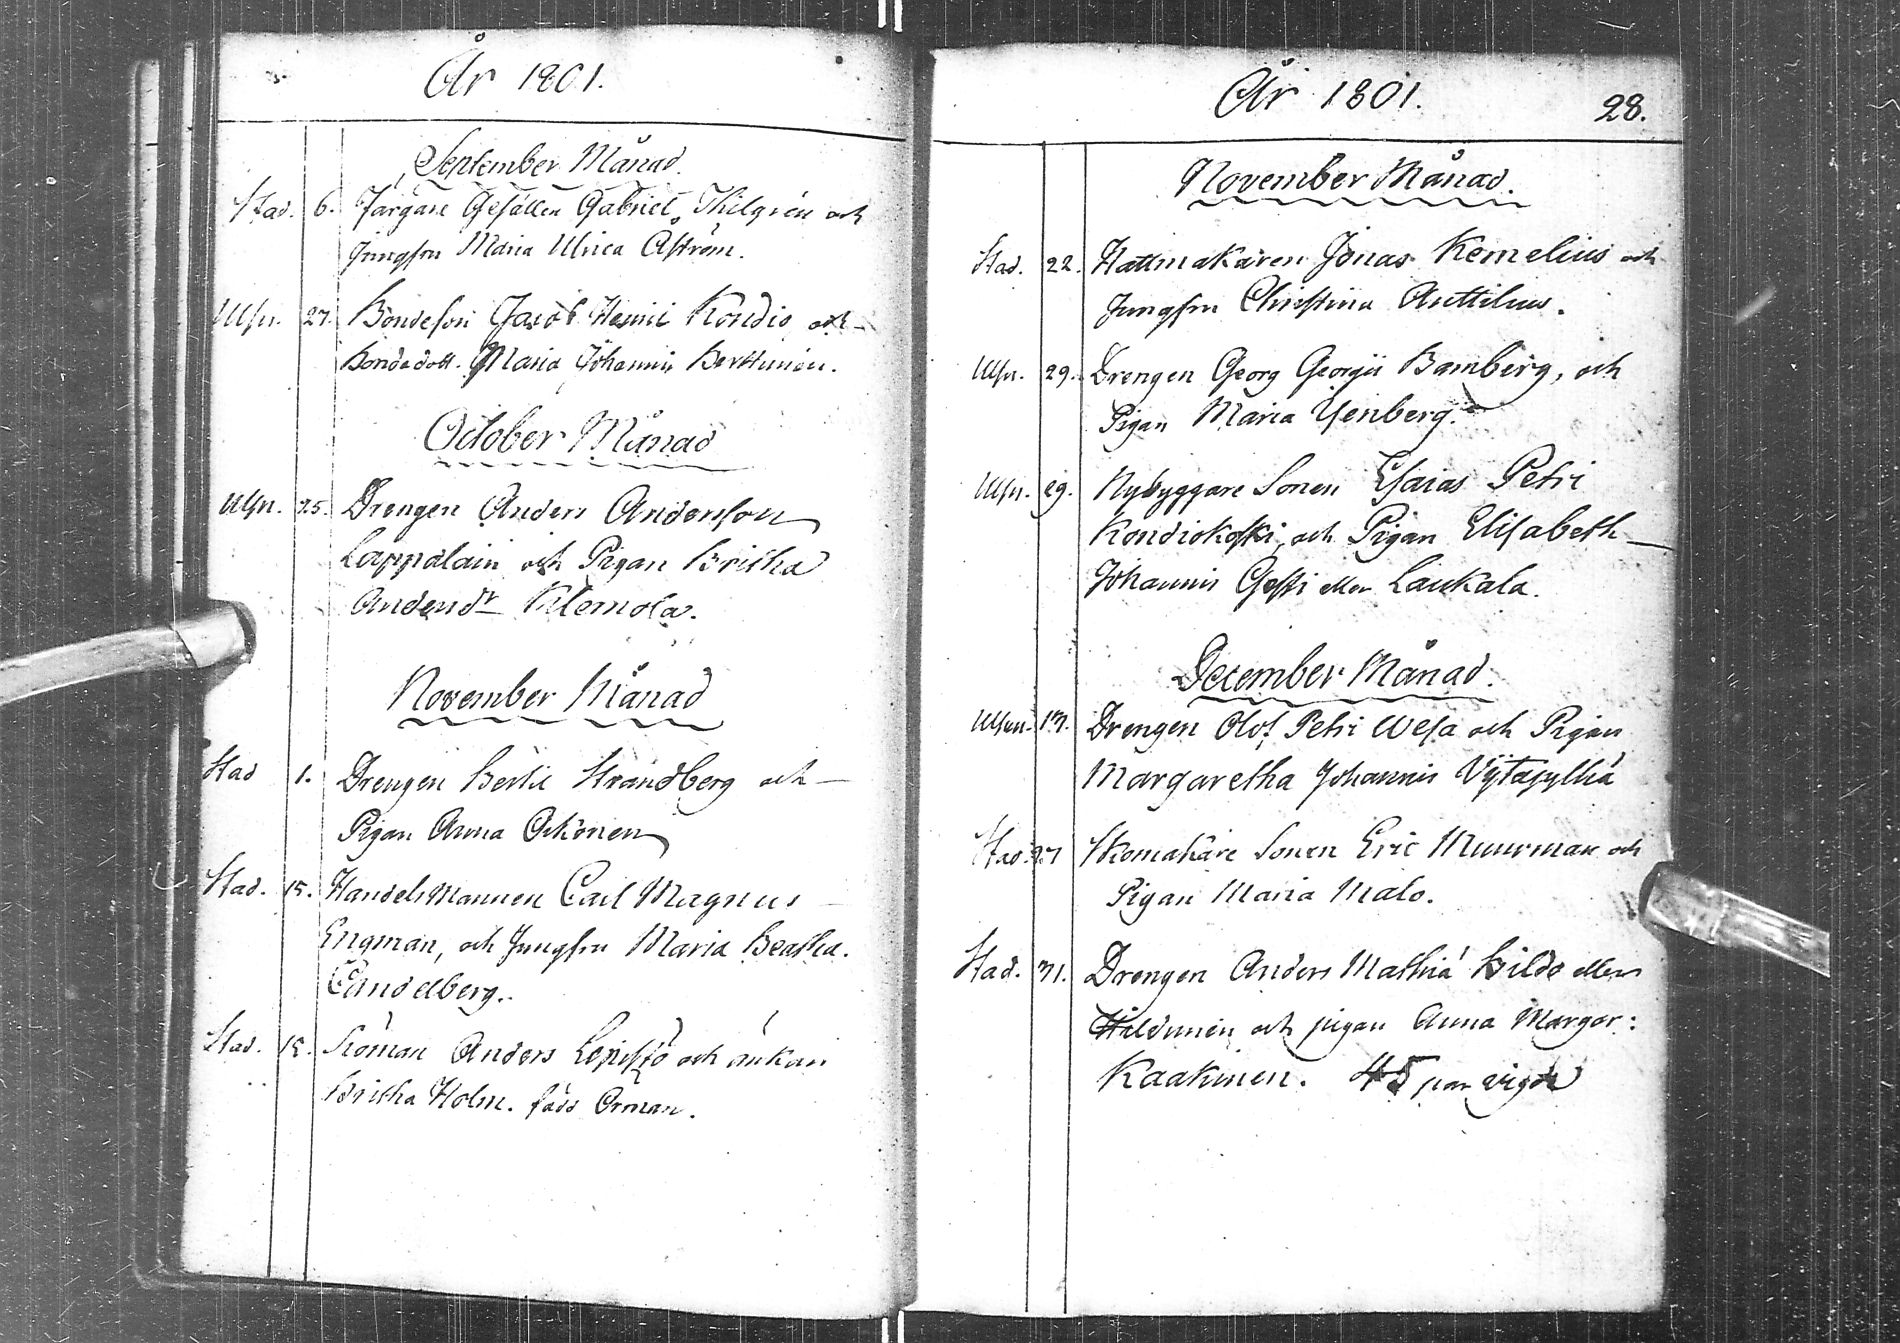 År 1801.
September Månad.
Stad. 6. Färgare Gesällen Gabriel Thilgrén och
Jungfru Maria Ulrica Åström.
Ulfn. 27. Bondeson Jacob Henric Kondio och
Bondedott. Maria Johannis Berttunén.
October Månad
Ulfn. 25. Drengen Anders Anderson
Lappalain och Pigan Britha
Andersdr Klemola.
November Månad
Stad 1. Drengen Bertil Strandberg och
Pigan Anna Ockonen
Stad. 15. HandelsMannen Carl Magnus
Engman, och Jungfru Maria Beatha
Candelberg.
Stad. 15. Sjöman Anders Lepistjö och änkan
Britha Holm. född Orman.
År 1801.
28.
November Månad.
Stad. 22. Hattmakaren Jonas Kemelius och
Jungfru Christina Anttilius.
Ulfn. 29. Drengen Georg Georgii Bamberg, och
Pigan Maria Yenberg.
Ulfn. 29. Nybyggare Sonen Esaias Petri
Kondiokoski, och Pigan Elisabeth
Johannis Gesti eller Laukala.
December Månad.
Ulfn. 13. Drengen Olof Petri Wesa och Pigan
Margaretha Johannis
Stad. 27 Skomakare Sonen Eric Muurman och
Pigan Maria Malo.
Stad. 31. Drengen Anders Mathiæ Hildo eller
Hildunén och pigan Anna Margar:
Kaakinen. 45 par vigde